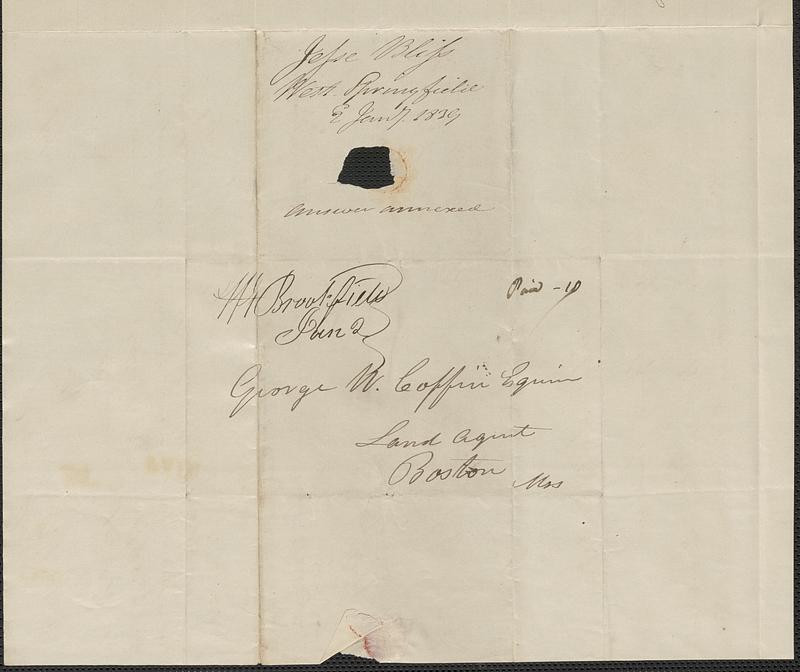 Jesse Bliss
West Springfield
2 Jany. 1839
answer annexed
W Brookfield
Jan 2
Paid - 10
George W. Coffin Equire
Land Agent
Boston
Mss